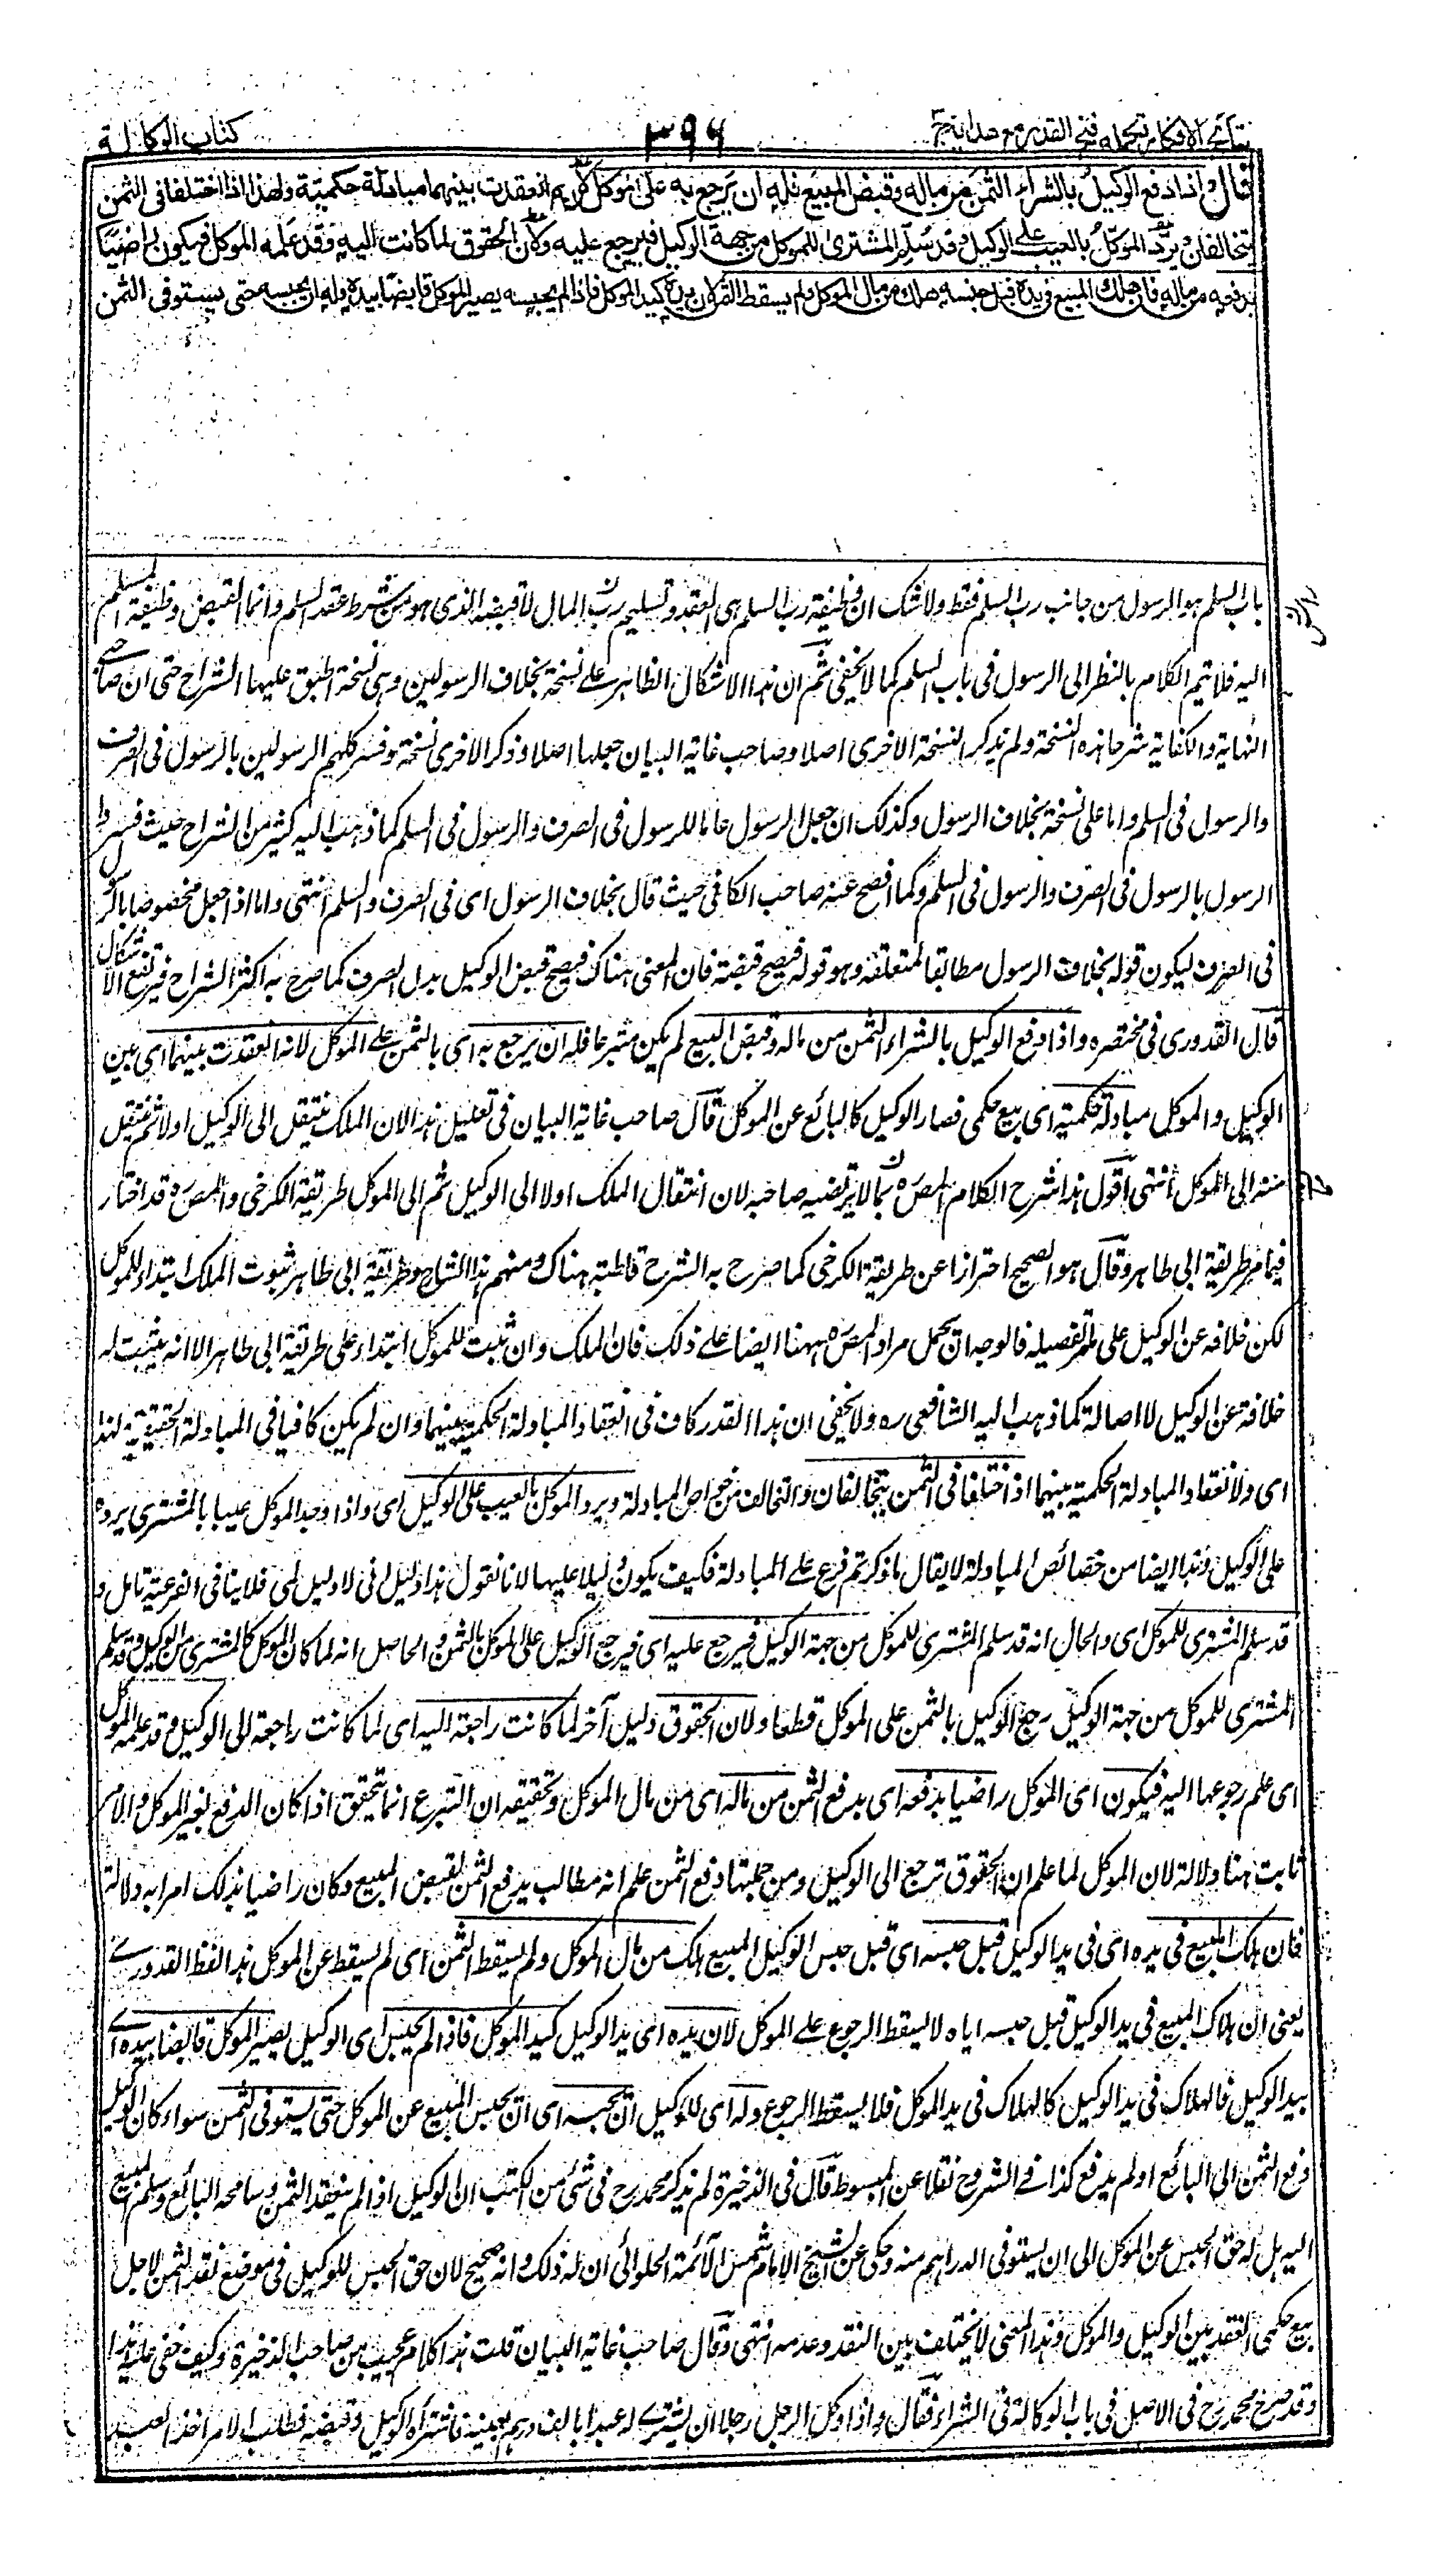 نتائج الافكار تكملة فتح القدير مع هداية ج
٣٩٦
كتاب الوكالة
قال واذا دفع الوكيل بالشراء الثمن من ماله وقبض المبيع فله ان يرجع به على الموكل لانه انعقدت بينهما مبادلة حكمية ولهذا اذا اختلفا فى الثمن
يتحالفان ويردّ الموكّل بالعيب على الوكيل وقد سُلّم المشترى للموكل من جهة الوكيل فيرجع عليه ولان الحقوق لما كانت اليه وقد علمه الموكل فيكون راضيًا
بدفعه من ماله فان هلك المبيع فى يده قبل حبسه هلك من مال الموكل ولم يسقط الثمن لان يده كيد الموكل فاذا لم يحبسه يصير الموكل قابضا بيده وله ان يحبسه حتى يستوفى الثمن
باب السلم هو الرسول من جانب رب السلم فقط ولا شك ان وظيفة رب السلم هى العقد وتسليم رأس المال لا قبضه الذى هو من شرط عقد السلم وانما القبض وظيفة المسلم
اليه فلا يتم الكلام بالنظر الى الرسول فى باب السلم كما لا يخفى ثم ان هذا الاشكال الظاهر على نسخة بخلاف الرسولين وهى نسخة اطبق عليها الشراح حتى ان صاحبى
النهاية والكفاية شرحا هذه النسخة ولم يذكر النسخة الاخرى اصلا وصاحب غاية البيان جعلها اصلا وذكر الاخرى نسخة وفسر كلهم الرسولين بالرسول فى الصرف
والرسول فى السلم واما على نسخة بخلاف الرسول وكذلك ان جعل الرسول عاما للرسول فى الصرف والرسول فى السلم كما ذهب اليه كثير من الشراح حيث فسروا
الرسول بالرسول فى الصرف والرسول فى السلم وكما افصح عنه صاحب الكافى حيث قال بخلاف الرسول اى فى الصرف والسلم انتهى واما اذا جعل مخصوصا بالرسول
فى الصرف ليكون قوله بخلاف الرسول مطابقا لمتعلقه وهو قوله فيصح قبضه فان المعنى هناك فيصح قبض الوكيل بدل الصرف كما صرح به اكثر الشراح فيرتفع الاشكال
قال القدورى فى مختصره واذا دفع الوكيل بالشراء الثمن من ماله وقبض المبيع لم يكن متبرعا فله ان يرجع به اى بالثمن على الموكل لانه انعقدت بينهما اى بين
الوكيل والموكل مبادلة حكمية اى بيع حكمى فصار الوكيل كالبائع عن الموكل قال صاحب غاية البيان فى تعليل هذا لان الملك ينتقل الى الوكيل اولا ثم ينتقل
منه الى الموكل انتهى اقول هذا شرح الكلام المصره بما لا يرتضيه صاحبه لان انتقال الملك اولا الى الوكيل ثم الى الموكل طريقة الكرخى والمصره قد اختار
فيما مر طريقة ابى طاهر وقال هو الصحيح احترازا عن طريقة الكرخى كما صرح به الشرح قاطبة هناك ومنهم هذا الشارح وطريقة ابى طاهر ثبوت الملك ابتداء للموكل
لكن خلافة عن الوكيل على ما مر تفصيله فالوجه ان يحمل مراد المصره ههنا ايضا على ذلك فان الملك وان ثبت للموكل ابتداء على طريقة ابى طاهر الا انه يثبت له
خلافة عن الوكيل لا اصالة كما ذهب اليه الشافعى ره ولا يخفى ان هذا القدر كاف فى انعقاد المبادلة الحكمية بينهما وان لم يكن كافيا فى المبادلة الحقيقية لهذا
اى ولانعقاد المبادلة الحكمية بينهما اذا اختلفا فى الثمن يتحالفان والتحالف من خواص المبادلة ويرد الموكل بالعيب على الوكيل اى واذا وجد الموكل عيبا بالمشترى يرده
على الوكيل وهذا ايضا من خصائص المبادلة لا يقال ما ذكرتم فرع على المبادلة فكيف يكون دليلا عليها لانا نقول هذا دليل انى لا دليل لمى فلا ينافى الفرعية تامل و
قد سلم المشترى للموكل اى والحال انه قد سلم المشترى للموكل من جهة الوكيل فيرجع عليه اى فيرجع الوكيل على الموكل بالثمن والحاصل انه لما كان الموكل كالمشترى من الوكيل وقد سلم
المشترى للموكل من جهة الوكيل رجع الوكيل بالثمن على الموكل قطعا ولان الحقوق دليل آخر لما كانت راجعة اليه اى لما كانت راجعة الى الوكيل وقد علمه الموكل
اى علم رجوعها اليه فيكون اى الموكل راضيا بدفعه اى بدفع الثمن من ماله اى من مال الموكل وتحقيقه ان التبرع انما يتحقق اذا كان الدفع بغير الموكل والامر
ثابت هنا دلالة لان الموكل لما علم ان الحقوق ترجع الى الوكيل ومن جملتها دفع الثمن علم انه مطالب بدفع الثمن لقبض المبيع وكان راضيا بذلك امرا به دلالة
فان هلك المبيع فى يده اى فى يد الوكيل قبل حبسه اى قبل حبس الوكيل المبيع هلك من مال الموكل ولم يسقط الثمن اى لم يسقط عن الموكل هذا لفظ القدورى
يعنى ان هلاك المبيع فى يد الوكيل قبل حبسه اياه لا يسقط الرجوع على الموكل لان يده اى يد الوكيل كيد الموكل فاذا لم يحبس اى الوكيل يصير الموكل قابضا بيده اى
بيد الوكيل فالهلاك فى يد الوكيل كالهلاك فى يد الموكل فلا يسقط الرجوع وله اى للوكيل ان يحبسه اى ان يحبس المبيع عن الموكل حتى يستوفى الثمن سواء كان الوكيل
دفع الثمن الى البائع او لم يدفع كذا فى الشروح نقلا عن المبسوط قال فى الذخيرة لم يذكر محمد رح فى شئ من الكتب ان الوكيل اذا لم ينقد الثمن وسامحه البائع وسلم المبيع
اليه هل له حق الحبس عن الموكل الى ان يستوفى الدراهم منه وحكى عن الشيخ الامام شمس الائمة الحلوائى ان له ذلك وانه صحيح لان حق الحبس للوكيل فى موضع نقد الثمن لاجل
بيع حكمى انعقد بين الوكيل والموكل وهذا المعنى لا يختلف بين النقد وعدمه انتهى وقال صاحب غاية البيان قلت هذا كلام عجيب من صاحب الذخيرة وكيف خفى عليه هذا
وقد صرح محمد رح فى الاصل فى باب الوكالة فى الشراء فقال واذا وكل الرجل رجلا ان يشترى له عبدا بالف درهم بعينه فاشتراه الوكيل وقبضه فطلب الآمر اخذ العبد